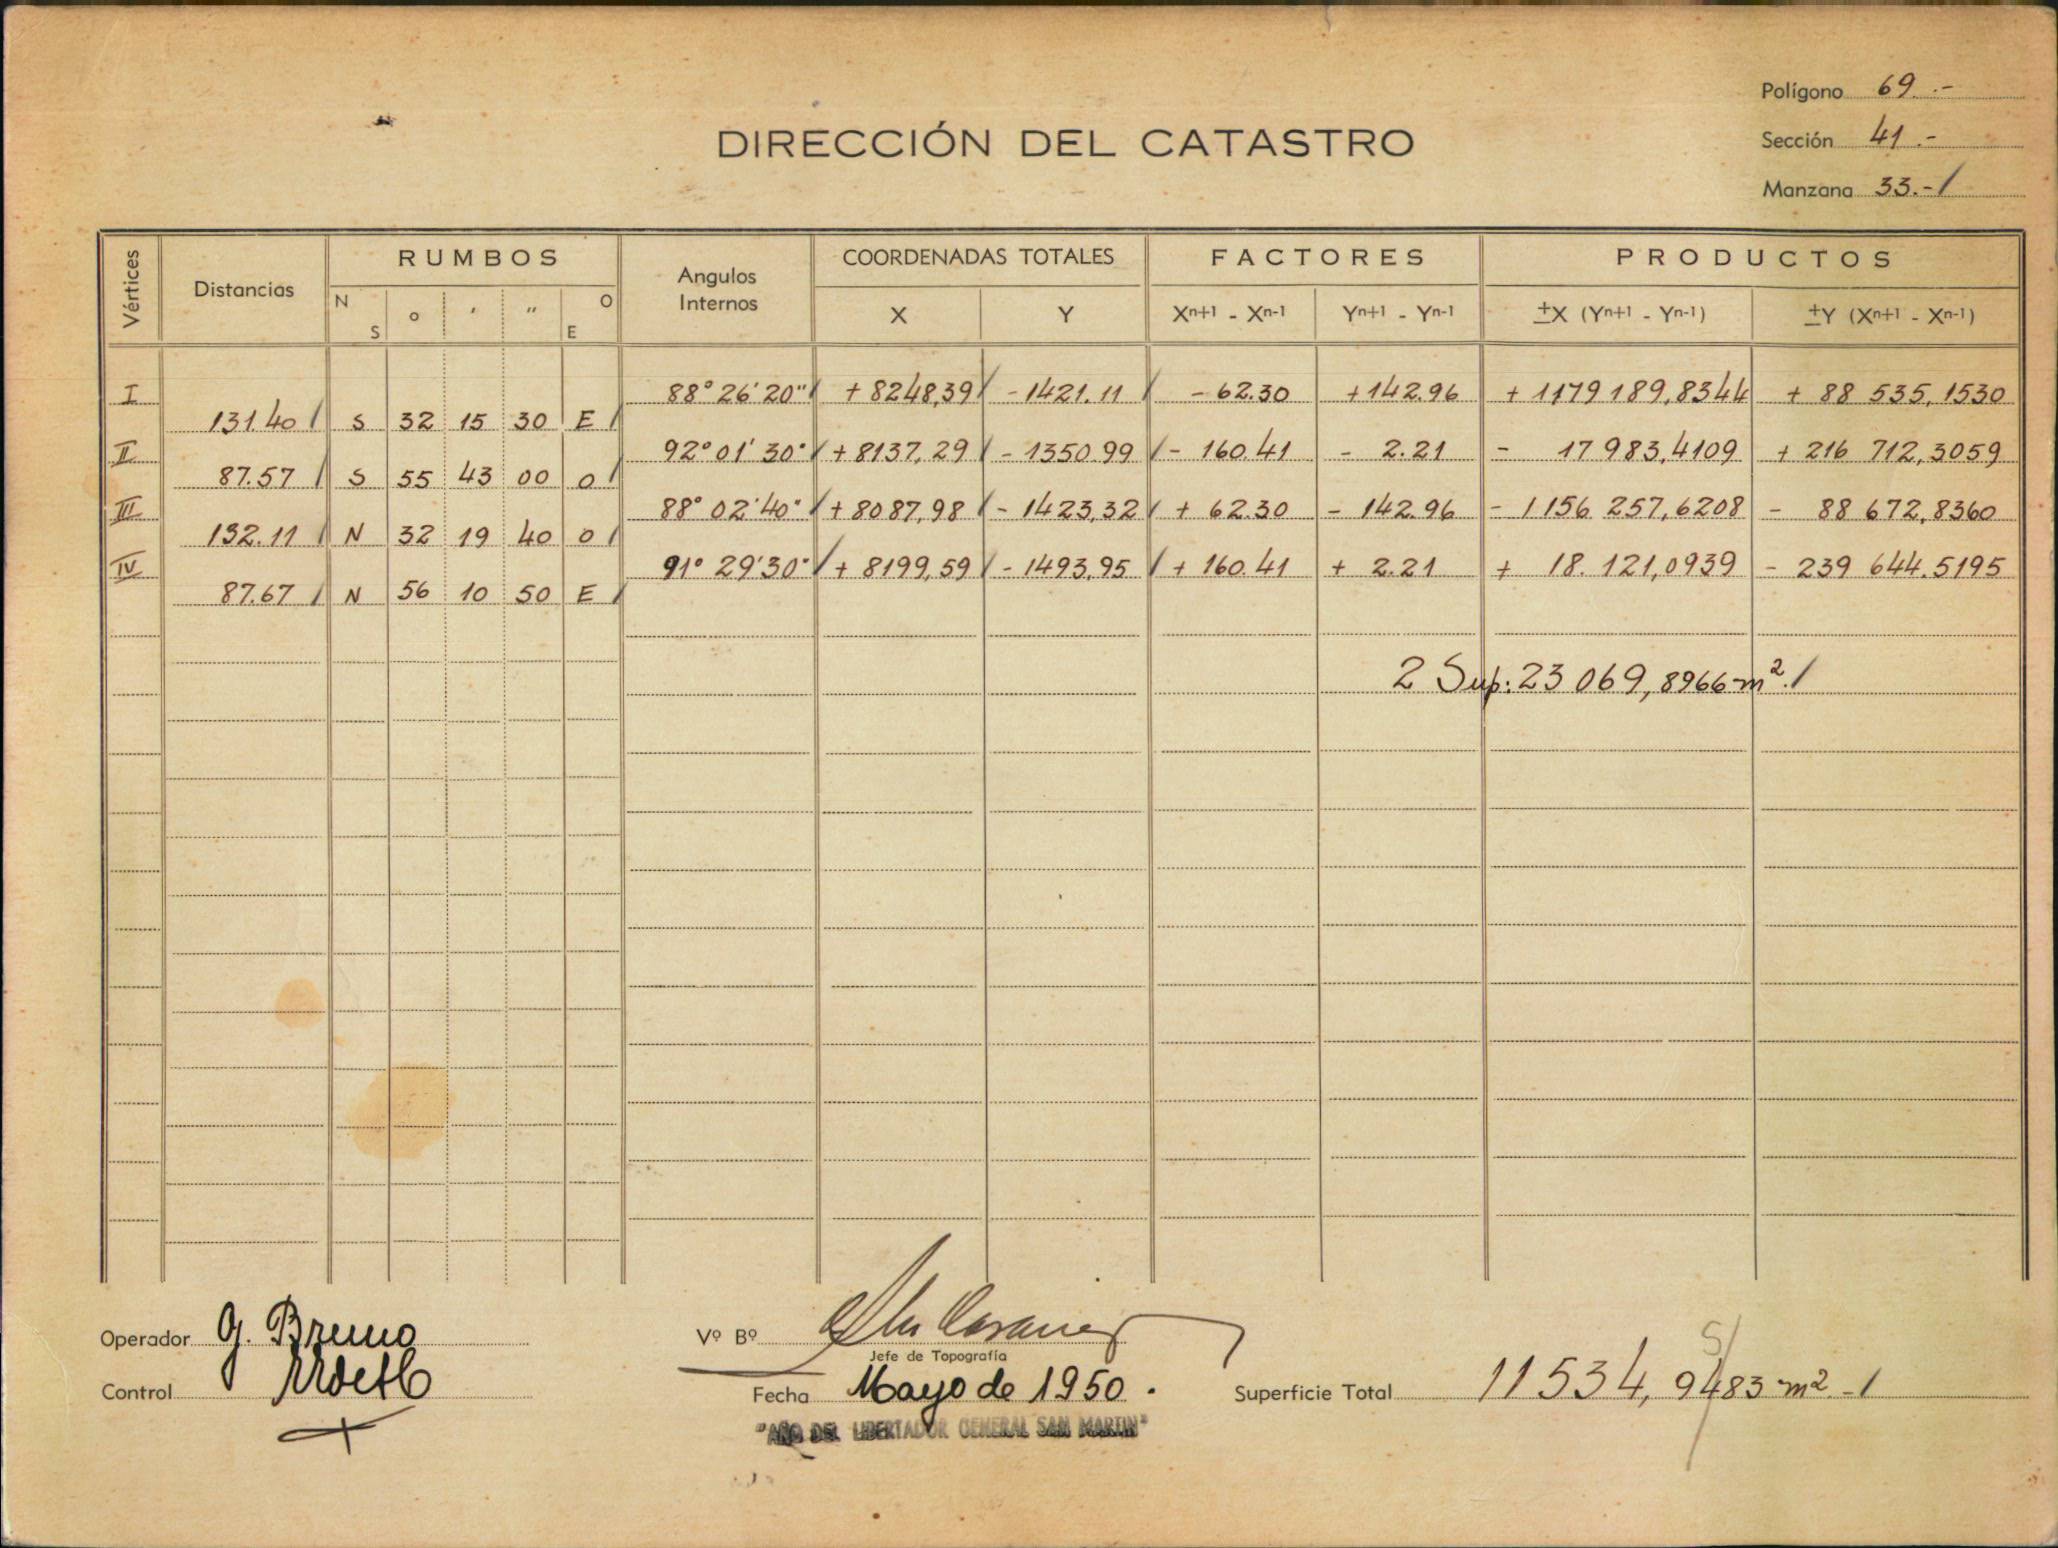 Polígono 69.-
DIRECCIÓN DEL CATASTRO
Sección 41.-
Manzana 33.-/
Vértices Distancias RUMBOS Angulos Internos COORDENADAS TOTALES FACTORES PRODUCTOS
N S ° ' " O E X Y Xn+1 - Xn-1 Yn+1 - Yn-1 ±X (Yn+1 - Yn-1) ±Y (Xn+1 - Xn-1)
I 88° 26' 20" / + 8248,39 / - 1421.11 / - 62.30 + 142.96 + 1179 189,8344 + 88 535,1530
131.40 / S 32 15 30 E /
II 92° 01' 30" / + 8137,29 / - 1350 99 / - 160.41 - 2.21 - 17 983,4109 + 216 712,3059
87.57 / S 55 43 00 O /
III 88° 02' 40" / + 8087,98 / - 1423,32 / + 62.30 - 142.96 - 1156 257,6208 - 88 672,8360
132.11 / N 32 19 40 O /
IV 91° 29' 30" / + 8199,59 / - 1493,95 / + 160.41 + 2.21 + 18.121,0939 - 239 644.5195
87.67 / N 56 10 50 E /
2 Sup: 23 069,8966 m². /
Operador G. Bruno
Vº Bº
Jefe de Topografía
Control
Fecha Mayo de 1950.
Superficie Total 11534,9483 m².-/
"AÑO DEL LIBERTADOR GENERAL SAN MARTIN"